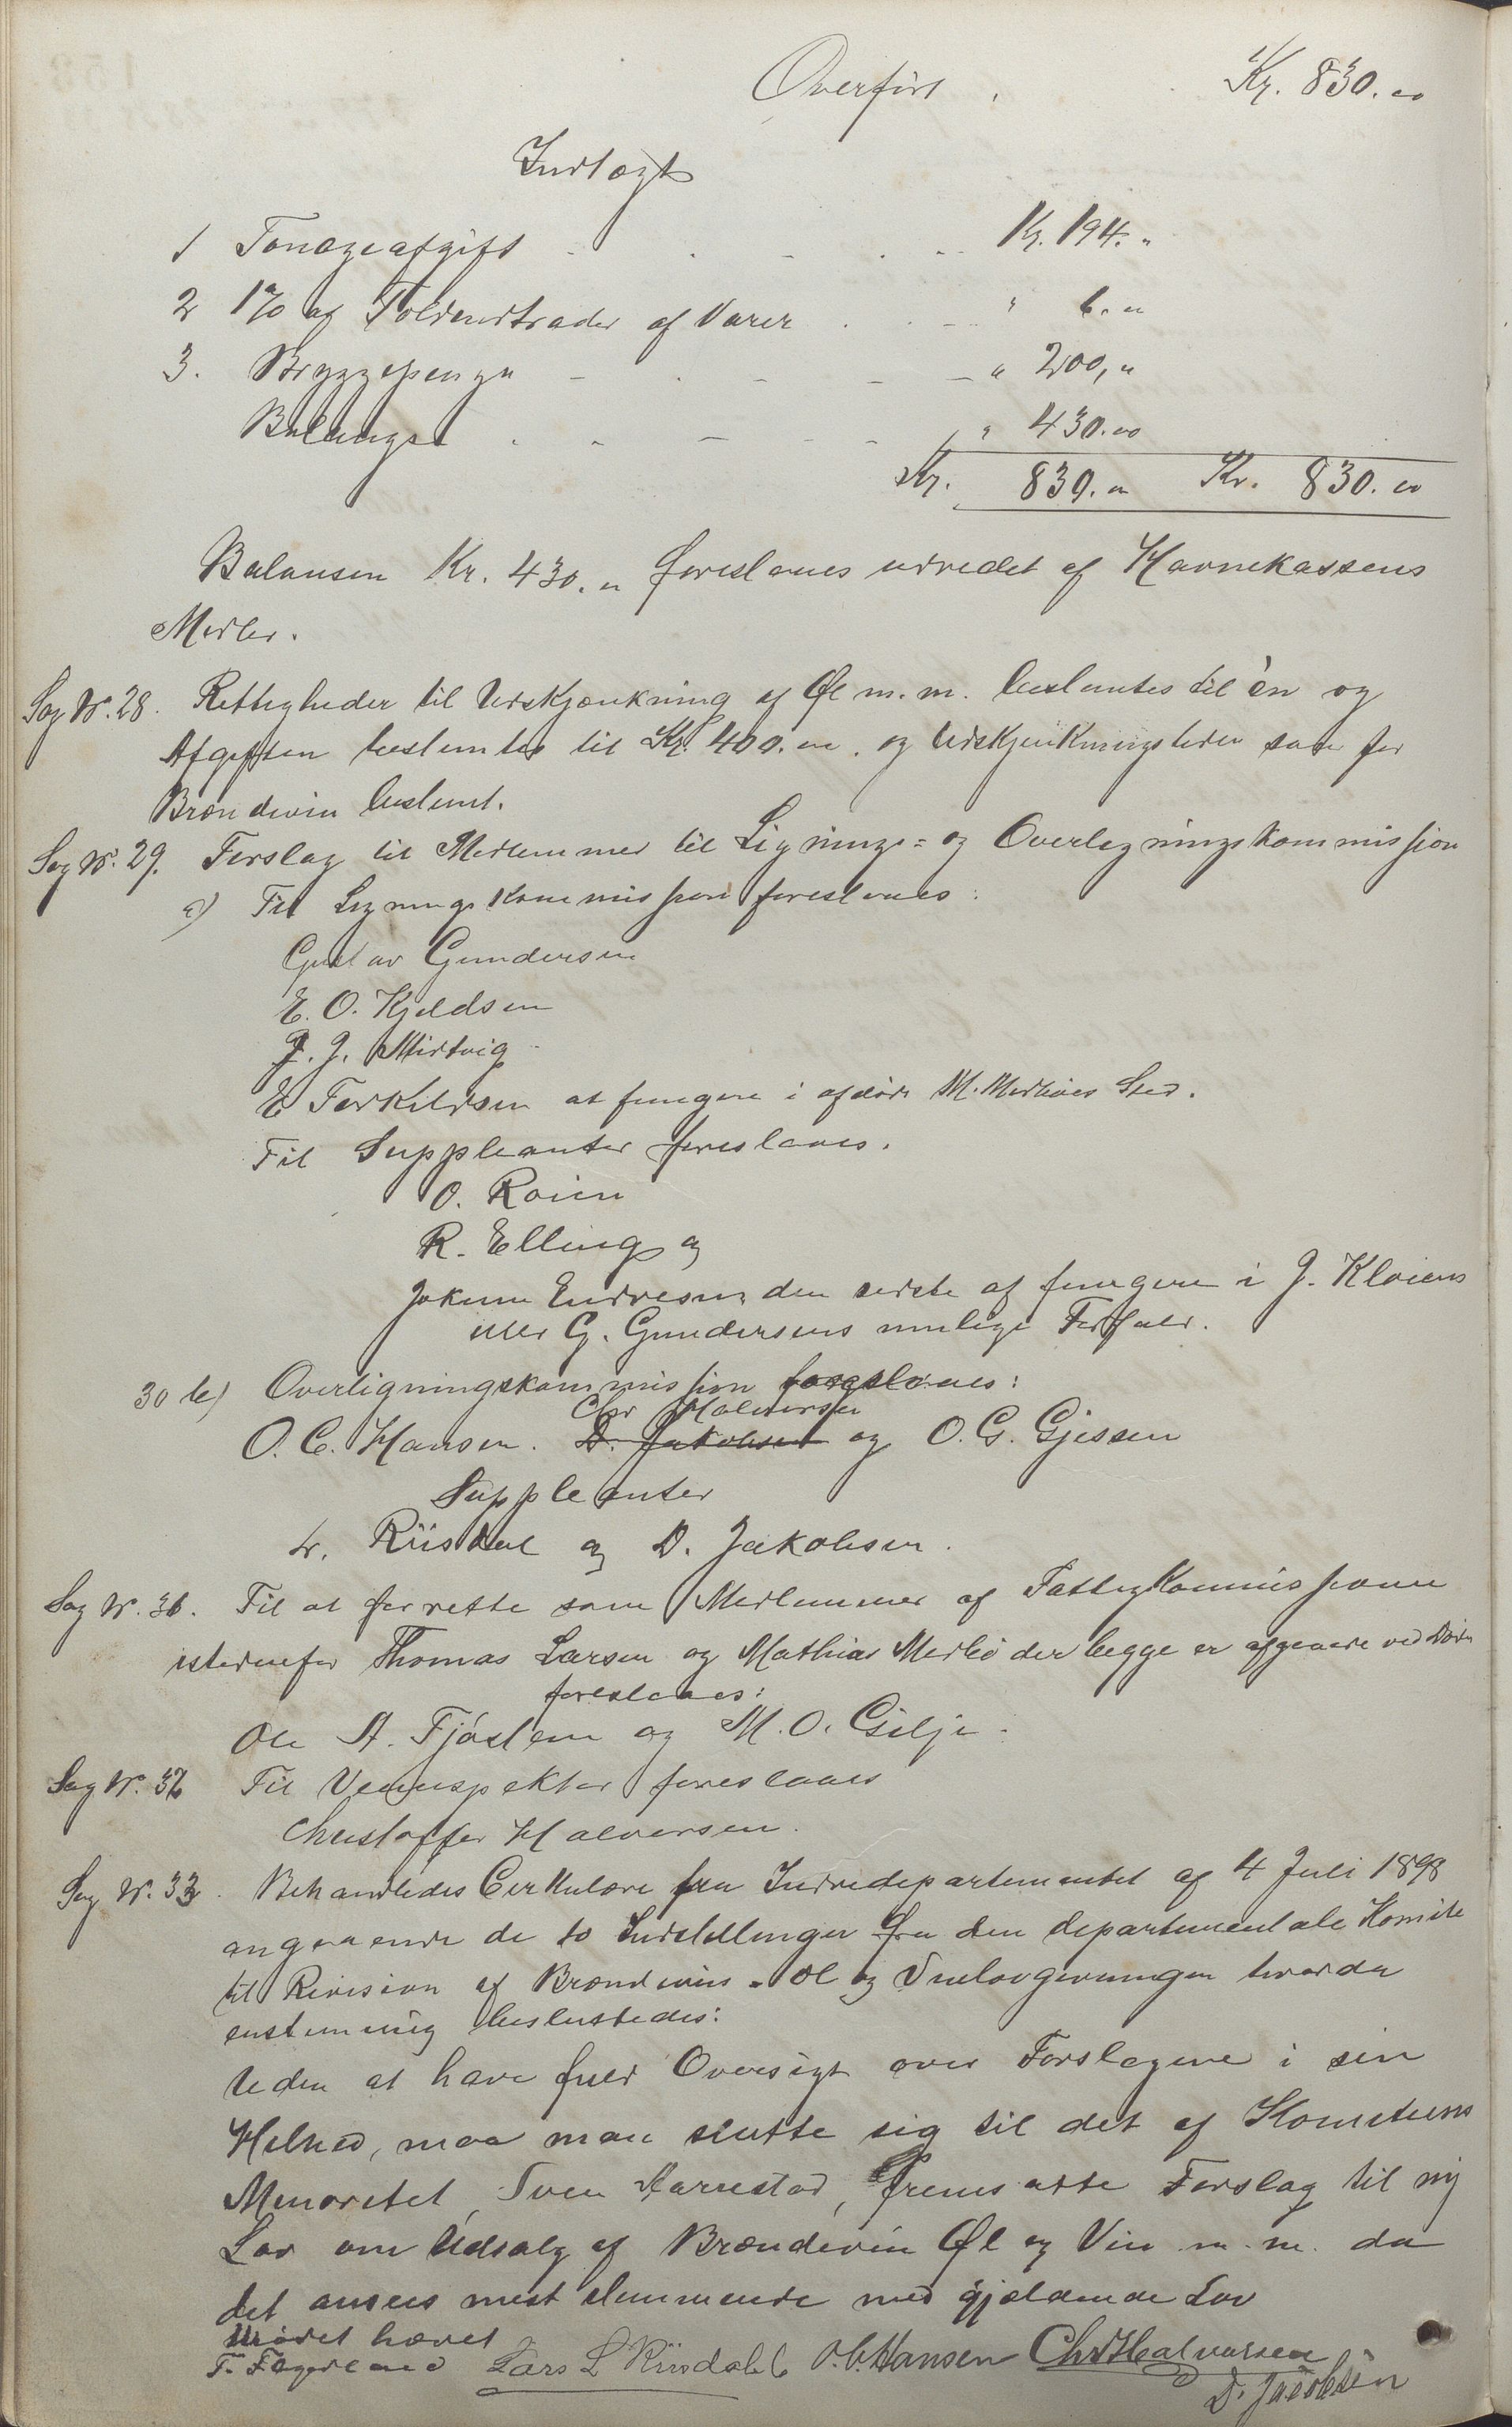 Overført . Kr. 830. 00
Indtægt
1 Tonageafgift - . - . - Kr. 194. "
2 1% af Toldindtræder af Varer . . - " 6. "
3. Bryggepenge - . - - - " 200, "
Balanger . - - - - " 430. 00
Kr. 830. " Kr. 830. 00
Balansen Kr. 430. " foreslaaes udredet af Havnekassens
Midler.
Sag Nr. 28. Rettigheder til Udskjænkning af Øl m. m. bestemtes til èn og
Afgiften bestemtes til Kr. 400. 00. og Udskjænkningstiden som for
Brændevin bestemt.
Sag Nr. 29. Forslag til Medlemmer til Lignings= og Overligningskommission
a) Til Ligningskommission foreslaaes:
Gustav Gundersen
E. O. Kjeldsen
J. J. Midtvig
E Torkildsen at fungere i afdøde M. Medbøes Sted.
Til Suppleanter foreslaaes.
O. Roien
R. Elling og
Jokum Endresen, den sidste at fungere i J. Kloiens
eller G. Gundersens mulige Forfald.
30 b) Overligningskommission foreslaaes:
Chr Halversen
O. C. Hansen. D. Jakobsen og O. G. Gjessen
Suppleanter
L. Riisdal og D. Jakobsen.
Sag Nr. 31. Til at forrette som Medlemmer af Fattigkommissionen
istedenfor Thomas Larsen og Mathias Medbø der begge er afgaaede ved Døden
foreslaaes:
Ole A. Tjåsteim og M. O. Gilje.
Sag Nr. 32 Til Veiinspektør foreslaaes
Christoffer Halversen.
Sag Nr. 33. Behandledes Cirkulære fra Indredepartementet af 4 Juli 1898
angaaende de to Indstillinger fra den departementale Komite
til Revision af Brændevins- Øl og Vinlovgivningen hvorda
enstemmig besluttedes:
Uden at have fuld Oversigt over Forslagene i sin
Helhed, maa man slutte sig til det af Komiteens
Minoritet, Sven Aarrestad, fremsatte Forslag til ny
Lov om Udsalg af Brændevin Øl og Vin m. m. da
det ansees mest stemmende med gjældende Lov
Mødet hævet
T. Fagerland Lars L Riisdahl O. C. Hansen Chr Halvorsen
D. Jacobsen